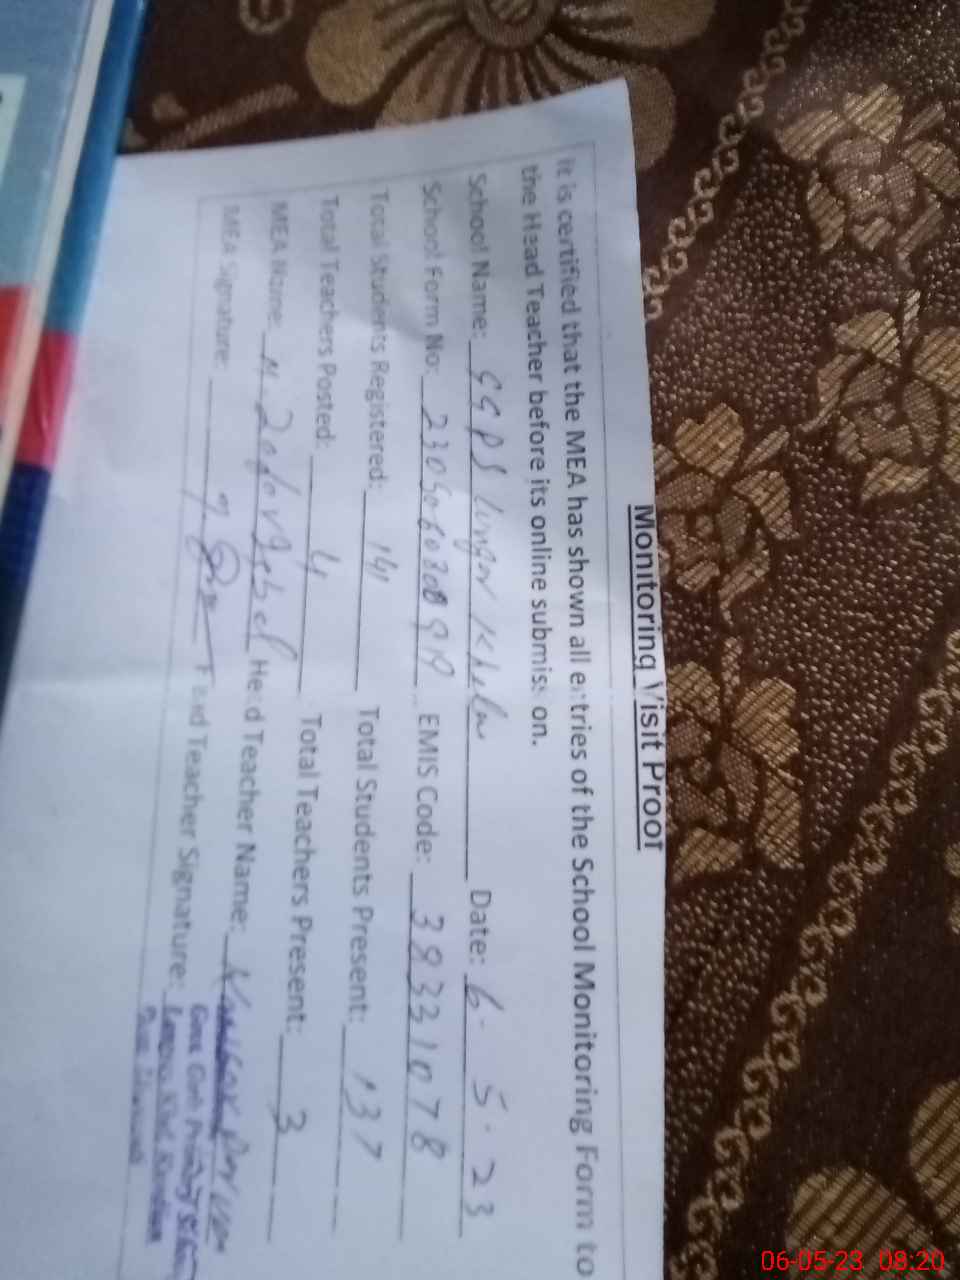 Monitoring Visit Proof
It is certified that the MEA has shown all entries of the School Monitoring Form to
the Head Teacher before its online submission.
School Name: GGPS Date: 6-5-23
School Form No: EMIS Code: 38331078
Total Students Registered: 141 Total Students Present: 137
Total Teachers Posted: 4 Total Teachers Present: 3
MEA Name: M Head Teacher Name:
MEA Signature: Head Teacher Signature:
Govt. Girls Primary School
06-05-23 08:20